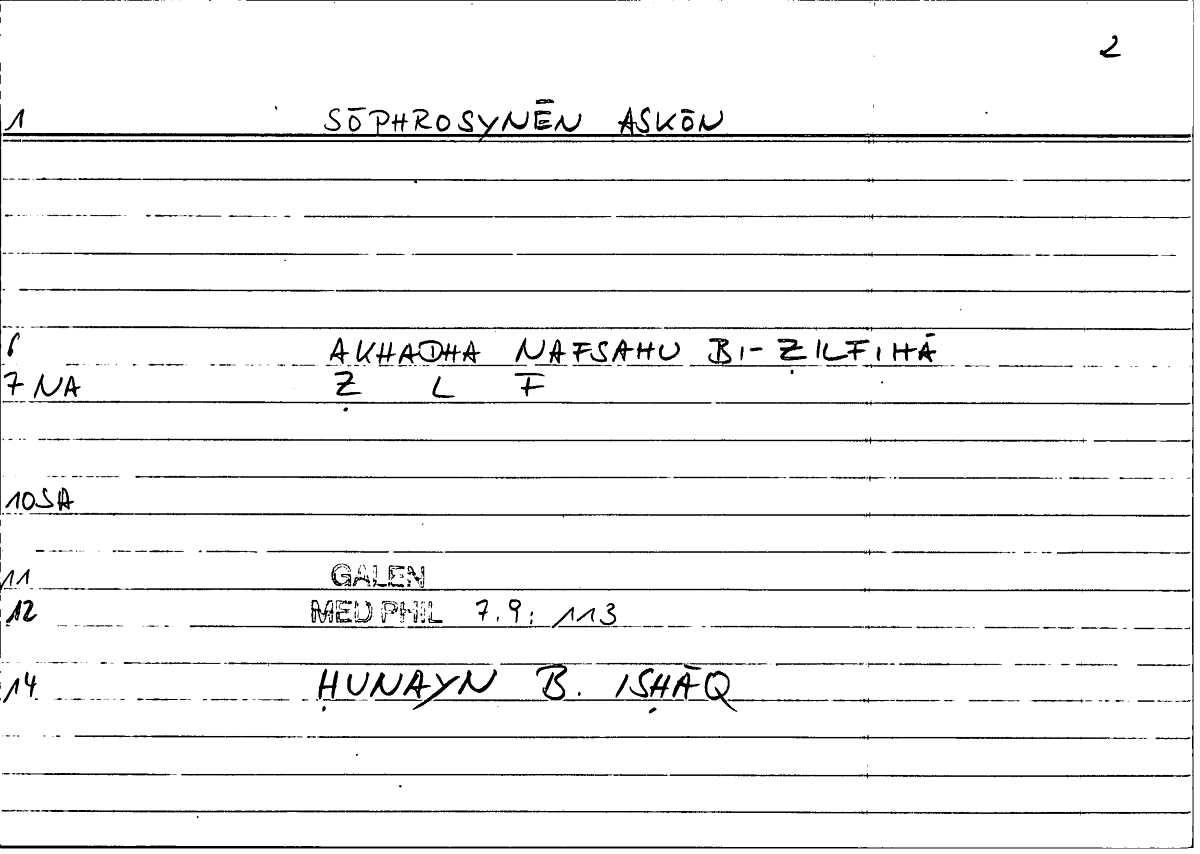 2
1 SŌPHROSYNĒN ASKŌN
6 AKHADHA NAFSAHU BI-ẒILFIHĀ
7 NA Ẓ L F
10 SA
11 GALEN
12 MED PHIL 7.9: 113
14 ḤUNAYN B. ISḤĀQ